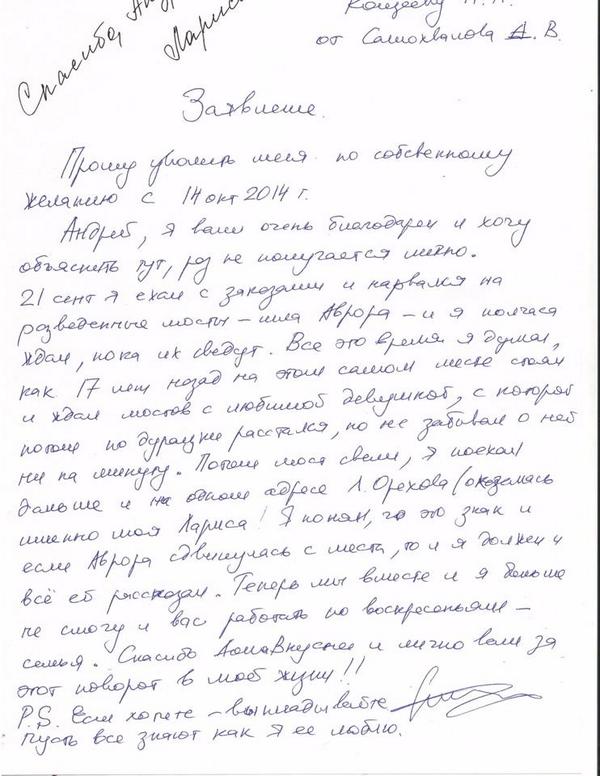 Спасибо, Анд
Лариса
Концееву
от Самохвалова А. В.
Заявление.
Прошу уволить меня по собсвенному
желанию с 14 окт 2014 г.
Андрей, я вам очень благодарен и хочу
объяснить тут, раз не получается лично.
21 сент я ехал с заказами и нарвался на
разведенные мосты – шла Аврора – и я полчаса
ждал, пока их сведут. Все это время я думал,
как 17 лет назад на этом самом месте стоял
и ждал мостов с любимой девушкой, с которой
потом по дурацки расстался, но не забывал о ней
ни на минуту. Потом моста свели, я поехал
дальше и на одном адресе Л. Орехова (оказалась
именно моя Лариса! Я понял, что это знак и
если Аврора сдвинулась с места, то и я должен и
всё ей рассказал. Теперь мы вместе и я больше
не смогу у вас работать по воскресеньям –
семья. Спасибо ДомаВкуснее и лично вам за
этот поворот в моей жизни!!
P.S. Если хотете – выкладывайте
пусть все знают как я ее люблю.